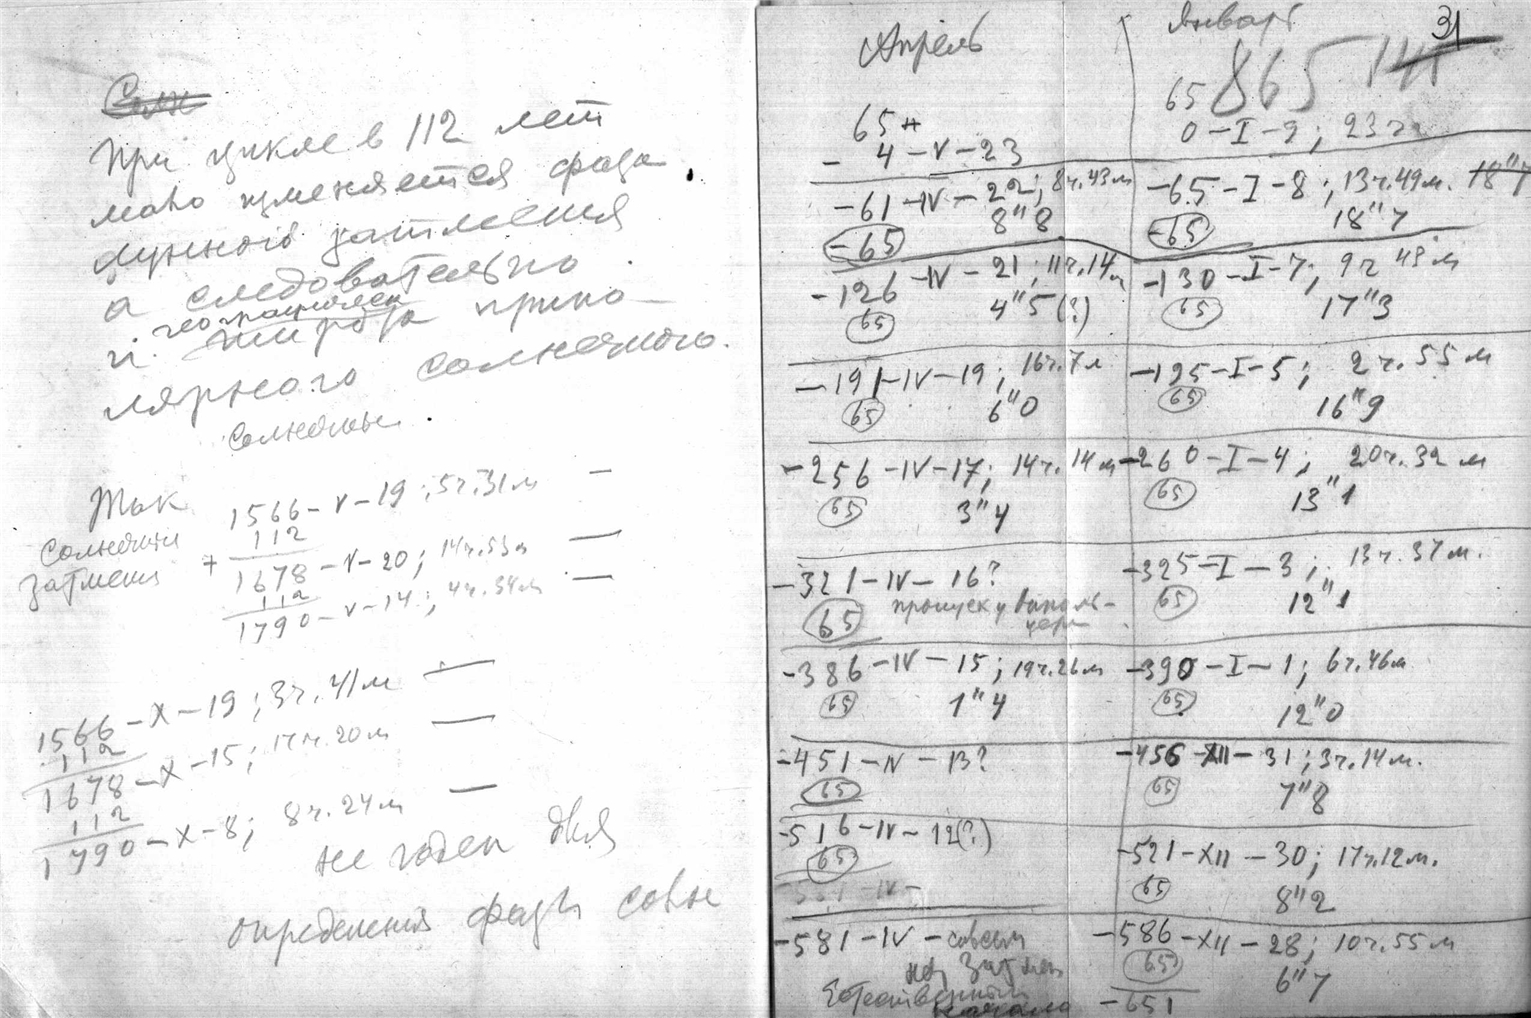 При цикле в 112 лет
мало изменяется фаза
лунного затмения
а следовательно
и географическ
широта припо-
лярного солнечного.
солнечные.
Так
солнечн
затмения
1566-V-19; 5ч.31м —
112
+
1678-V-20; 14ч.53м —
112
1790-V-14; 4ч.34м —
1566-X-19; 3ч.41м —
112
1678-X-15; 17ч.20м —
112
1790-X-8; 8ч.24м —
не годен для
определения фазы
Апрель
65
4-V-23
-61-IV-22; 8ч.43м
8"8
-65
-126-IV-21; 11ч.14м
4"5(?)
65
-191-IV-19; 16ч.7м
65
6"0
-256-IV-17; 14ч.14м
65
3"4
-321-IV-16?
65
пропуск у
-386-IV-15; 19ч.26м
65
1"4
-451-IV-13?
65
-516-IV-12(?)
65
-581-IV-совсем
нет затмен
Естественный
начало
Январь
31
865
65
0-I-9; 23ч
-65-I-8; 13ч.49м. 18"7
-65
18"7
-130-I-7; 9ч 43м
65
17"3
-195-I-5; 2ч.55м
65
16"9
-260-I-4; 20ч.32м
65
13"1
-325-I-3; 13ч.37м.
65
12"1
-390-I-1; 6ч.46м
65
12"0
-456-XII-31; 3ч.14м.
65
7"8
-521-XII-30; 17ч.12м.
65
8"2
-586-XII-28; 10ч.55м
65
6"7
-651